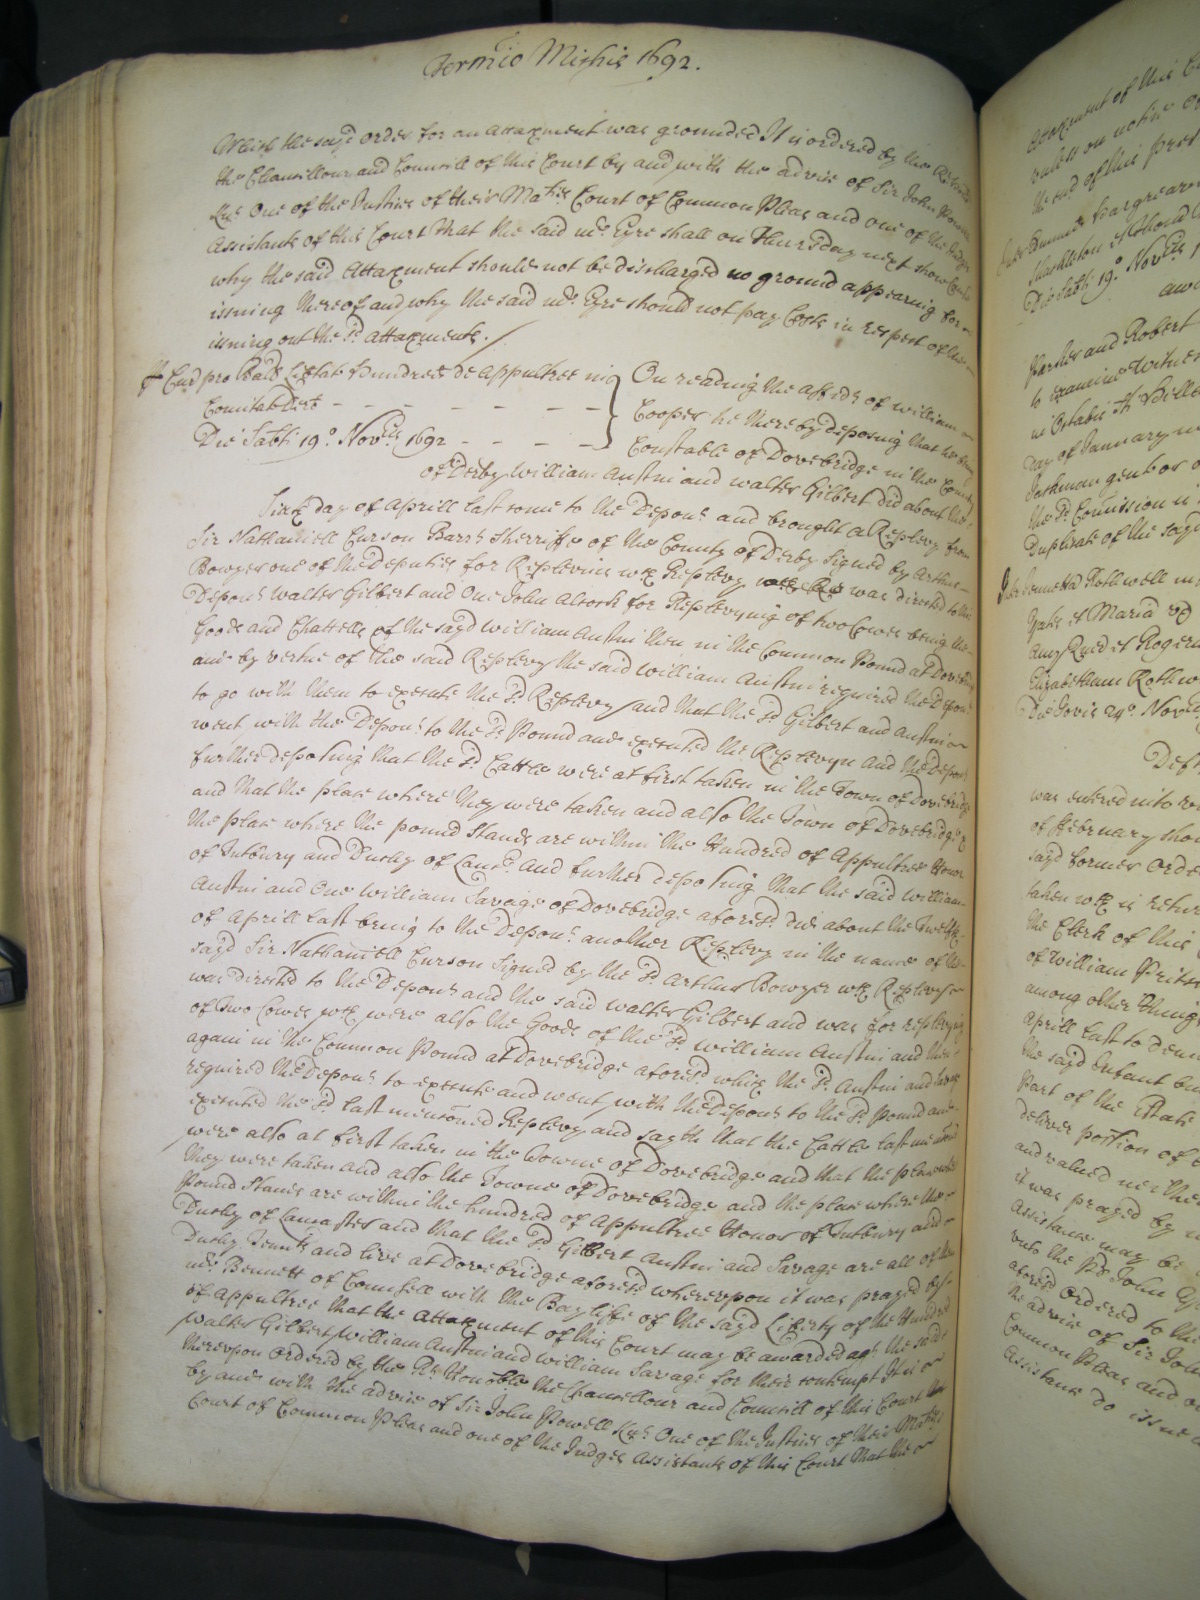 Termio Michis 1692.
Which the sayd order for an Attaxment was grounded It is ordered by the Rt
the Chancellour and Councill of this Court by and with the advice of Sir John Powell
Knt. One of the Justices of their Maties Court of Common Pleas and one of the Judges
Assistants of this Court That the said mr. Eyre shall on Thursday next show Cause
why the said Attaxment should not be discharged no ground appearing for
issuing thereof and why the said mr. Eyre should not pay Costs in respect of the
issuing out the sd. Attaxments.
Cur pro Ballo Libtat Hundred de Appultree in
Comitat Derb
Die Sabti 19o Novbis 1692
On reading the affidt of William
Cooper he thereby deposing that he being
Constable of Dovebridge in the County
of Derby William Austin and Walter Gilbert did about the
Sixt day of Aprill last come to the Depont and brought a Replevy from
Sir Nathaniell Curson Barrt Sherriffe of the County of Derby Signed by Arthur
Bowyer one of the Deputies for Replevins wch Replevy was directed to this
Depont Walter Gilbert and One John Alcock for Replevying of two Cowes being the
Goods and Chattells of the sayd William Austin then in the Common Pound at Dovebridge
and by vertue of the said Replevy the said William Austin required the Depont
to go with them to execute the sd Replevy and that the sd Gilbert and Austin
went with the Depont to the sd Pound and executed the Replevyn And the Depont
further deposing that the sd Cattle were at first taken in the Town of Dovebridge
and that the place where they were taken and also the Town of Dovebridge &
the place where the pound Stands are within the Hundred of Appultree Honor
of Tutbury and Duchy of Lancr. And further deposing that the said William
Austin and One William Savage of Dovebridge aforesd. did about the Twelfth
of Aprill last bring to the Depont. another Replevy in the name of the
sayd Sir Nathaniell Curson Signed by the sd Arthur Bowyer wch Replevy
was directed to the Depont and the said Walter Gilbert and was for replevying
of Two Cowes wch were also the Goods of the sd William Austin and then
again in the Common Pound at Dovebridge aforesd which the sd. Austin and Savage
required the Depont to execute and went with the Depont to the sd Pound and
executed the sd last menconed Replevy and sayth that the Cattle last menconed
were also at first taken in the Towne of Dovebridge and that the place where
they were taken and also the Towne of Dovebridge and the place where the
Pound Stands are within the hundred of Appultree Honor of Tutbury and
Duchy of Lancaster and that the sd. Gilbert Austin and Savage are all of the
Duchy Tennts and live at Dovebridge aforesd whereupon it was prayed by
mr. Bennett of Councell with the Bayliffe of the sayd Liberty of the Hundred
of Appultree that the Attaxment of this Court may be awarded agt. the said
Walter Gilbert William Austin and William Savage for their contempt It is
thereupon Ordered by the Rt. Honoble the Chancellour and Councill of this Court
by and with the advice of Sir John Powell Knt. One of the Justices of their Maties
Court of Common Pleas and one of the Judges Assistants of this Court That the
Attaxment of this
unless on notice
the end of this pres
Die Sabti 19o Novbis
and Robert
to examine Witness
day of January
Duplicate of the sayd
et Maria
et Rogeru
Elizabetham Rothw
Die Jovis 24o Nove
was entered into
of february
sayd former Orde
taken wch is retur
the Clerk of this
of William
among other things
Aprill last to
the sayd Infant
Part of the Estate
deliver
and valued
it was prayed by
Assistance may be
unto the sd John
aforesd Ordered
the advice of Sir John
Common Pleas and
Assistants do issue